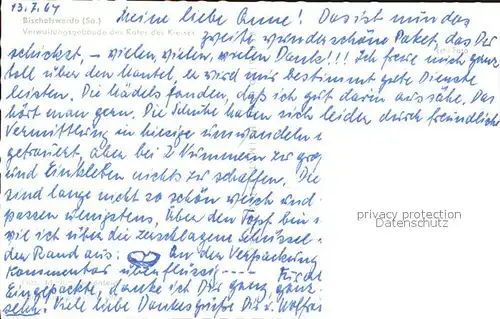 13.7.64
Bischofswerda (Sa.)
Verwaltungsgebäude des Rates der Kreises
Meine liebe Anne! Das ist nun das
zweite wunderschöne Paket, das Du
schickst, – vielen, vielen, vielen Dank!!! Ich freue mich ganz
toll über den Mantel, er wird mir bestimmt gute Dienste
leisten. Die Mädels fanden, daß ich gut darin aussähe. Das
hört man gern. Die Schuhe haben sich leider durch freundliche
Vermittlung in hiesige umwandeln
getrauert, aber bei 2 Nummern zu groß
und Einkleben nichts zu schaffen. Die
sind lange nicht so schön weich und
passen wenigstens. Über den Topf bin
wie ich über die zerschlagene Schüssel
den Rand aus: An der Verpackung
Kommentar überflüssig ---- Für
Eingepackte, danke ich Dir ganz, ganz
sehr! Viele liebe Dankesgrüße Dir u. Wolfra
privacy protection
Datenschutz